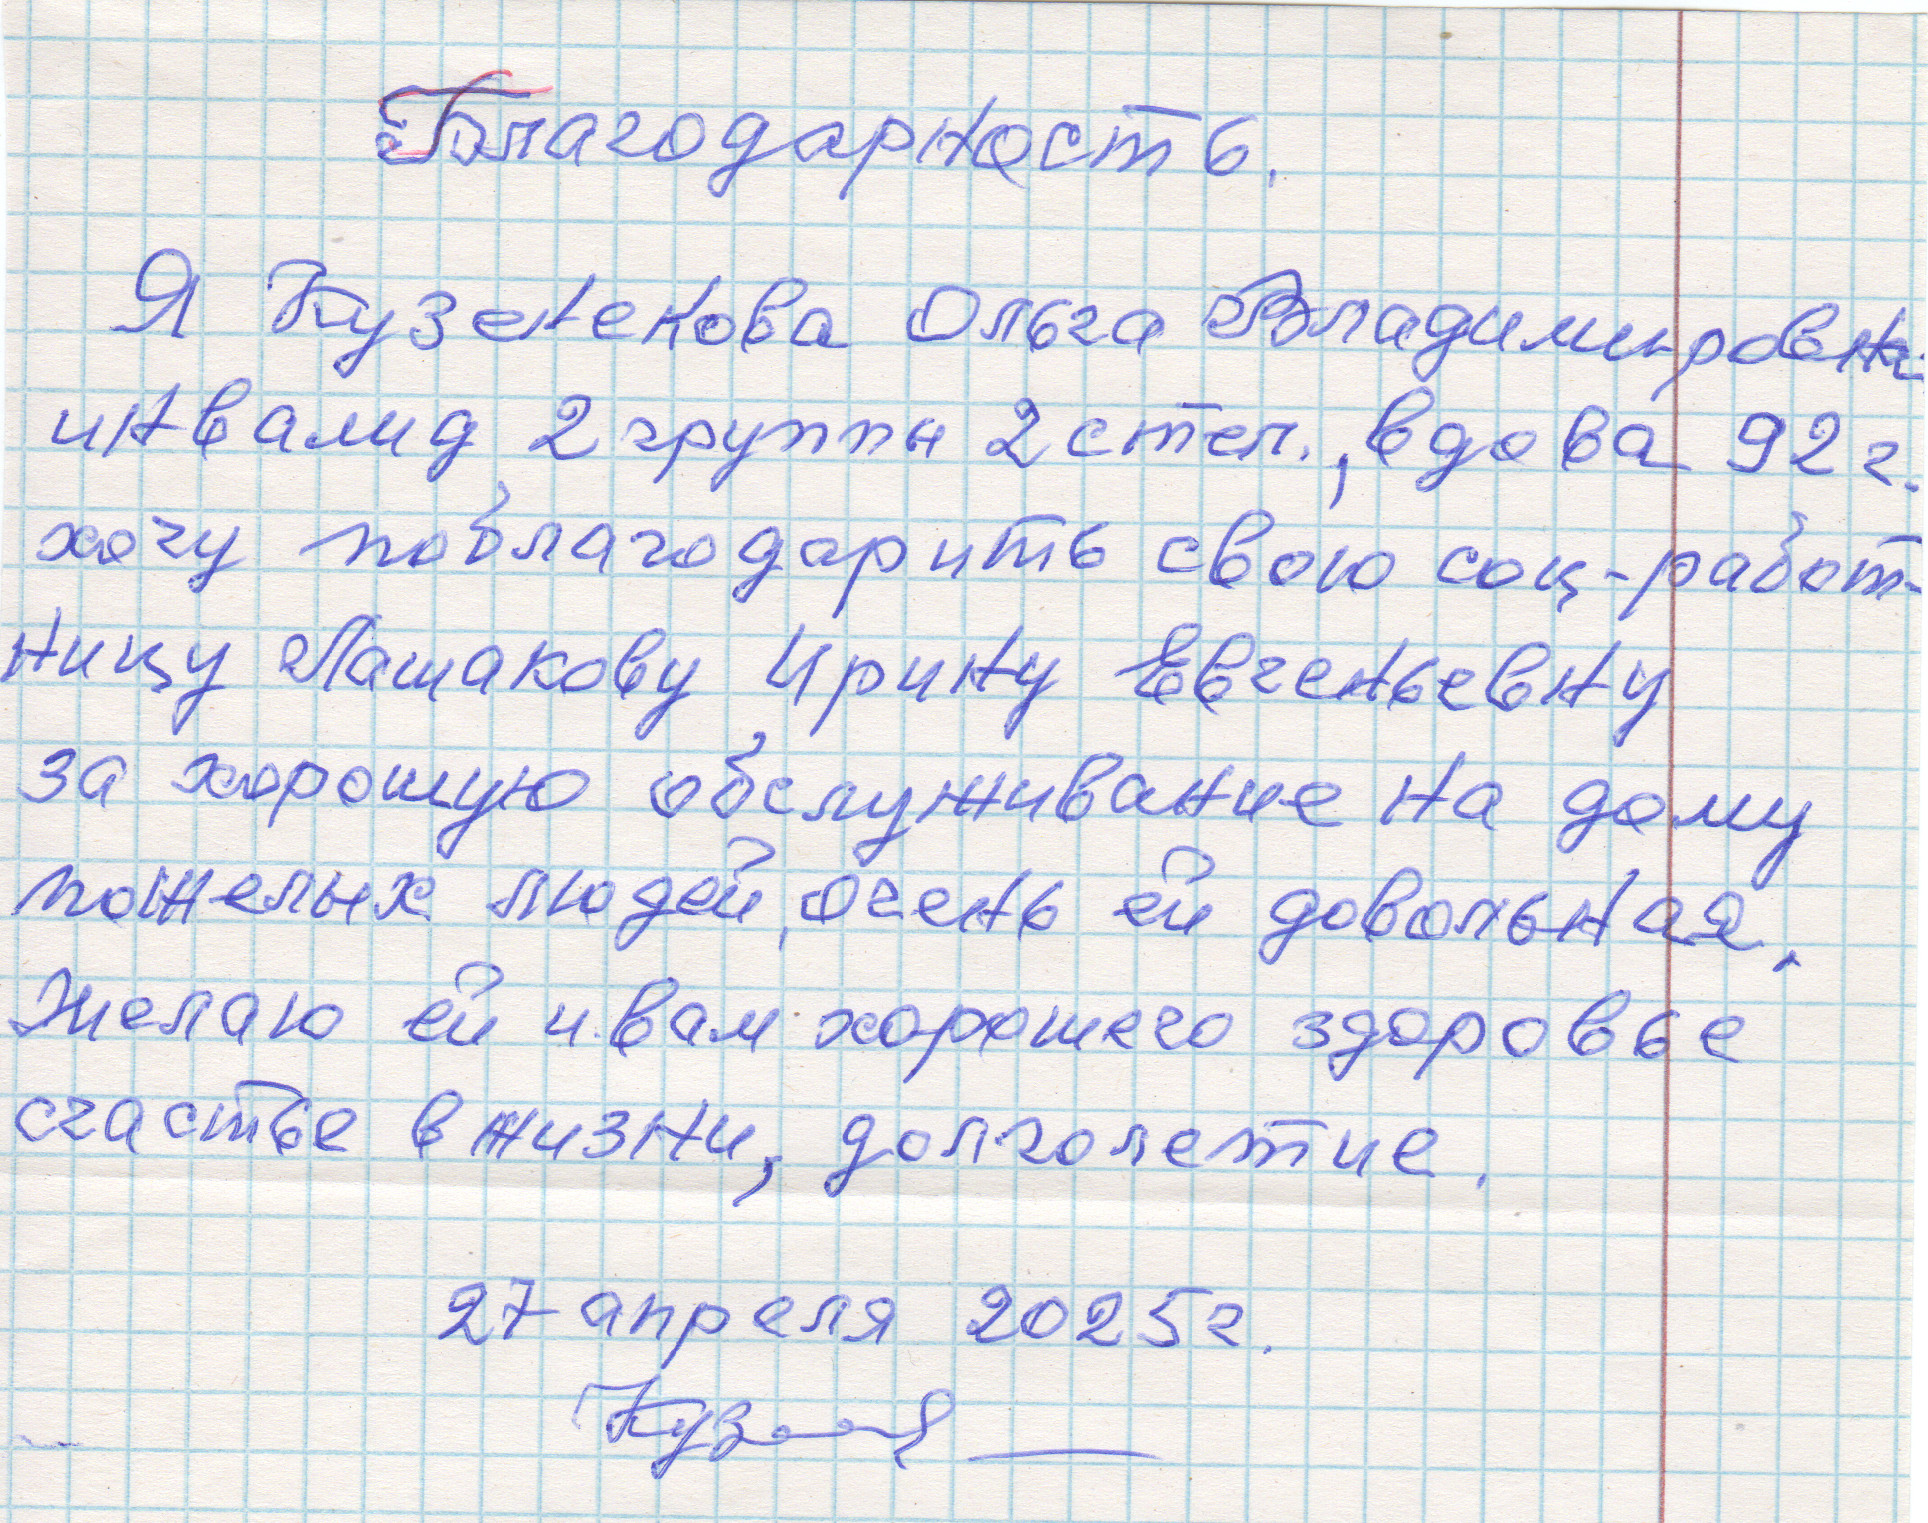 Благодарность.
Я Кузененкова Ольга Владимировна
инвалид 2 группы 2 степ., вдова 92 г.
хочу поблагодарить свою соц-работ-
ницу Лашакову Ирину Евгеньевну
за хорошую обслуживание на дому
пожелых людей, очень ей довольная.
Желаю ей и вам хорошего здоровье
счастье в жизни, долголетие.
27 апреля 2025 г.